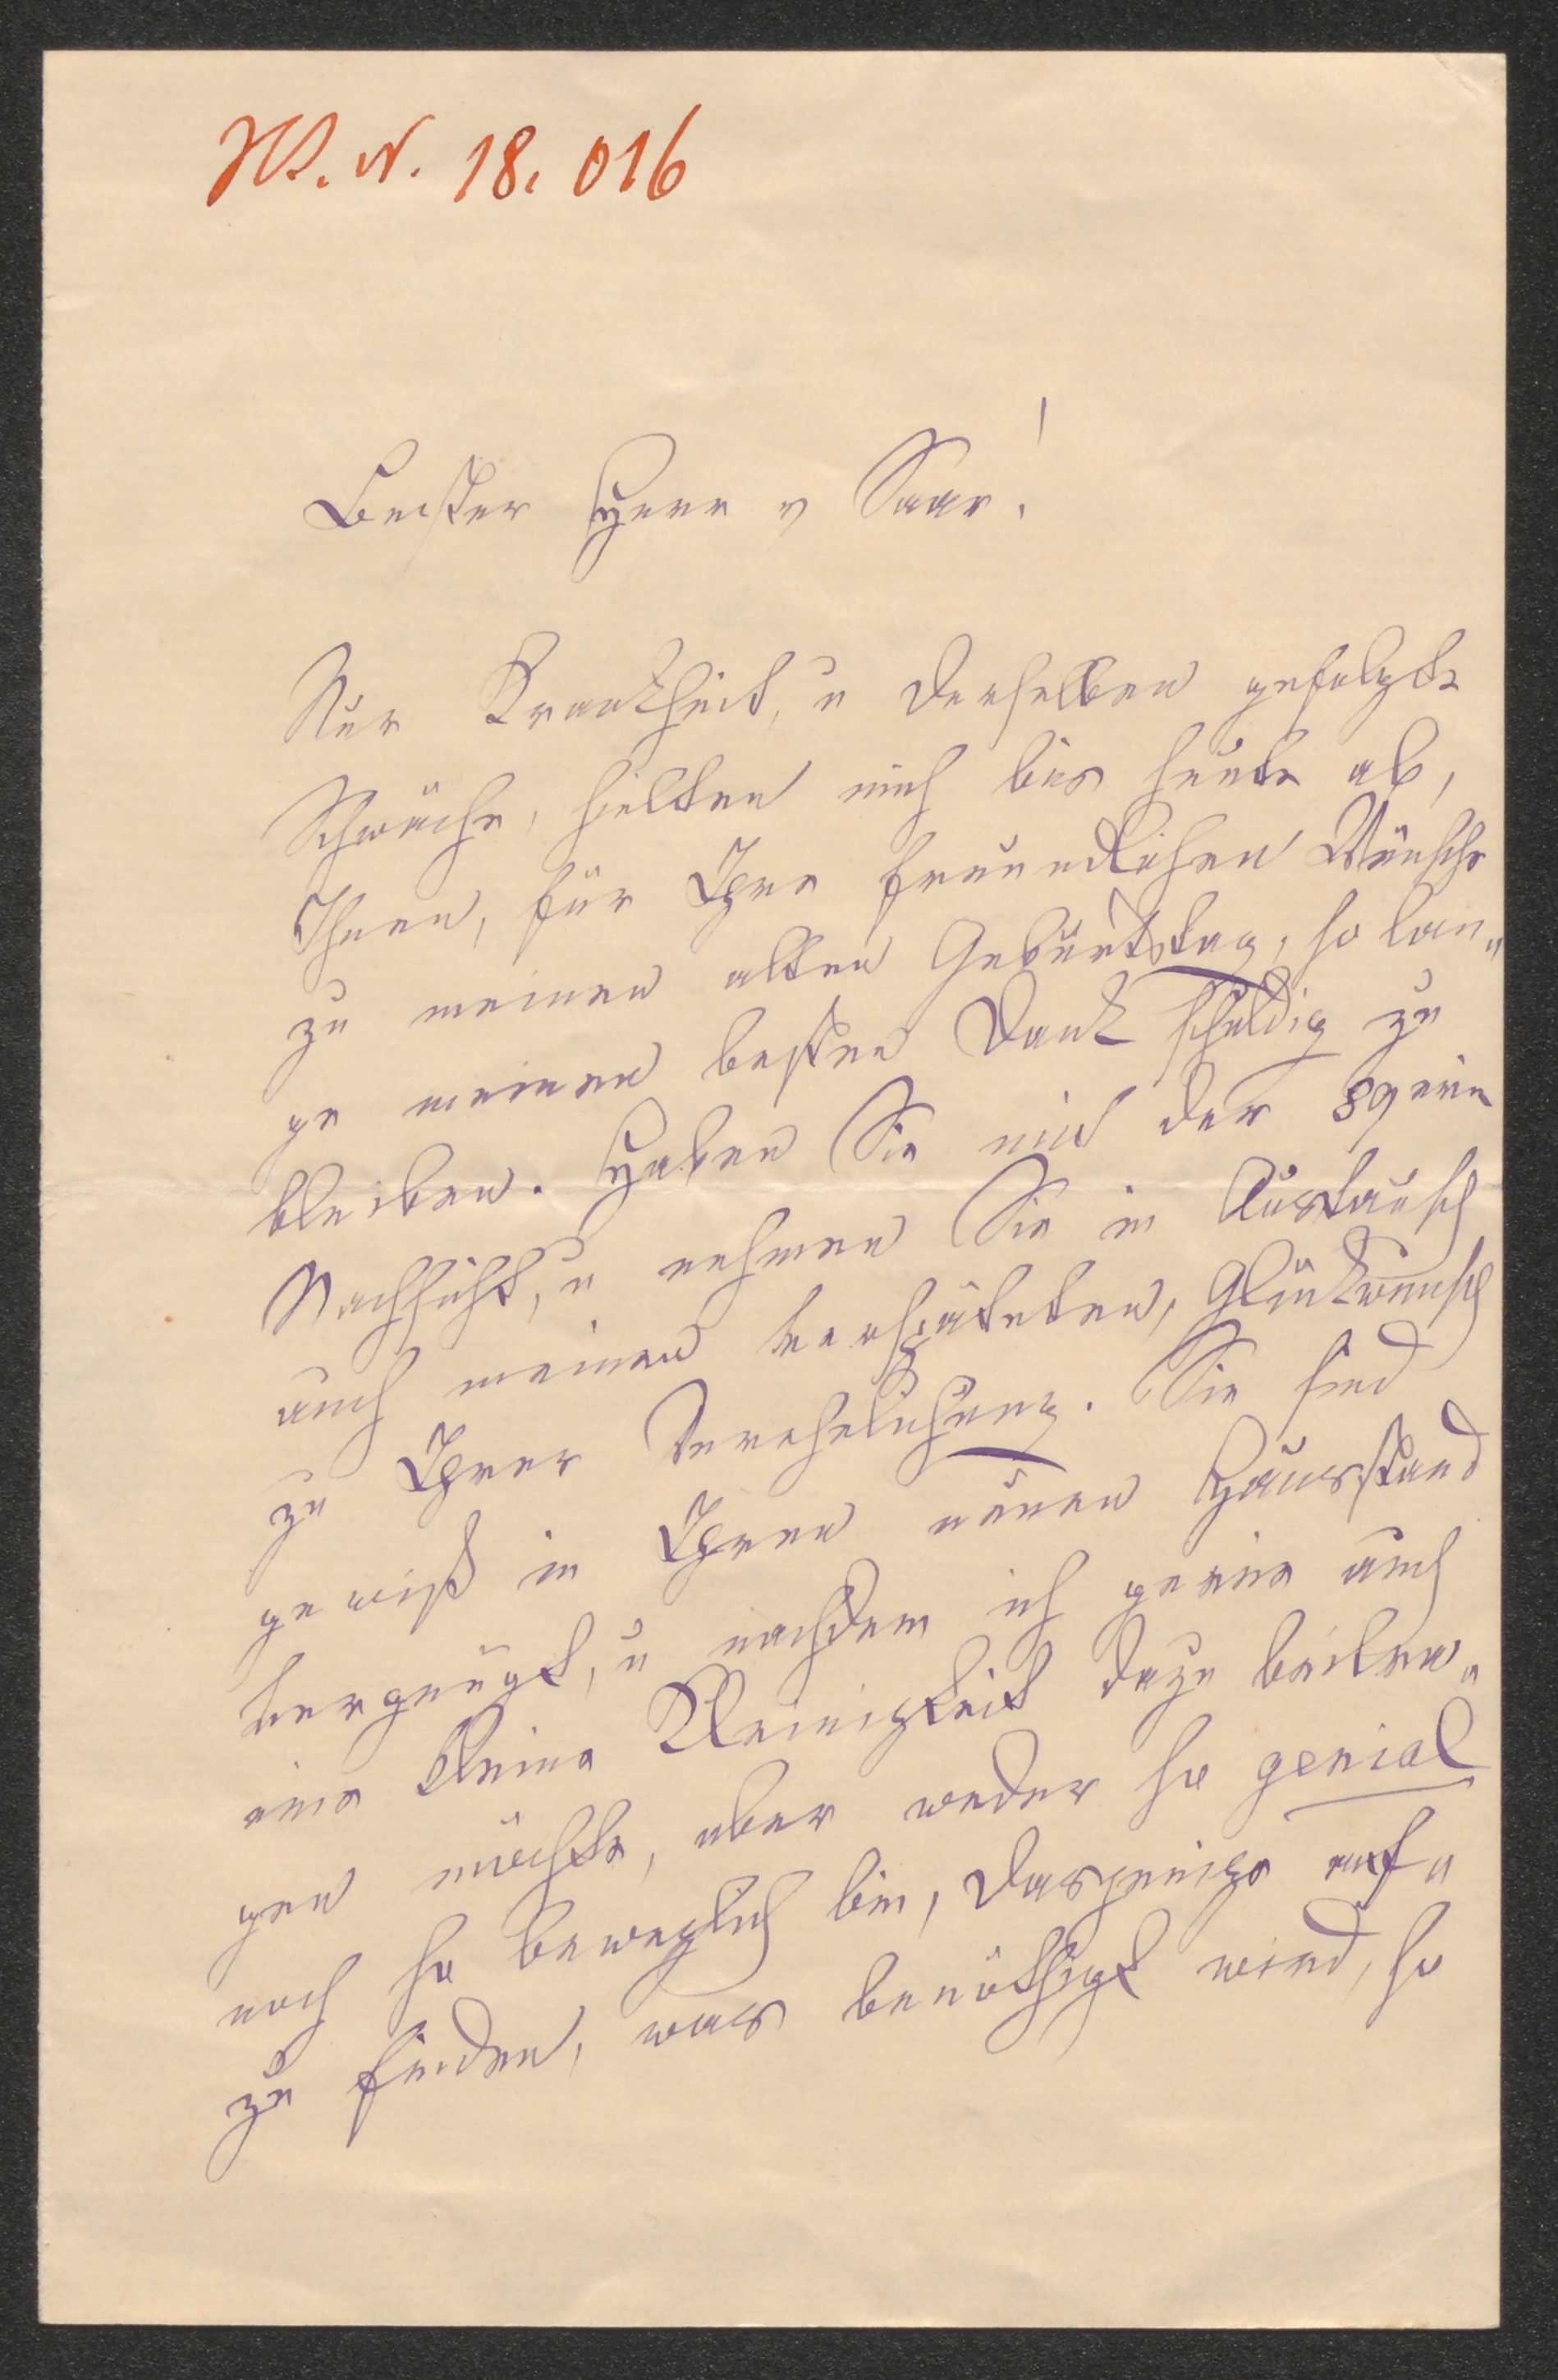 H.I.N. 18.016
Bester Herr v Saar!
Nur Krankheit, u derselben gefolgte
Schwäche, hielten mich bis heute ab,
Ihnen, für Ihre freundlichen Wünsche
zu meinen alten Geburtstag, so lan„
ge meinen besten Dank schuldig zu
bleiben. Haben Sie mit der 89erin
Nachsicht, u nehmen Sie in Austausch
auch meinen verspäteten, Glückwunsch
zu Ihrer Verehelichung. Sie sind
gewiß in Ihren neuen Hausstand
vergnügt, u nachdem ich gerne auch
eine kleine Kleinigkeit dazu beitra„
gen möchte, aber weder so genial
noch so beweglich bin, dasjenige auf„
zu finden, was benöthigt wird, so